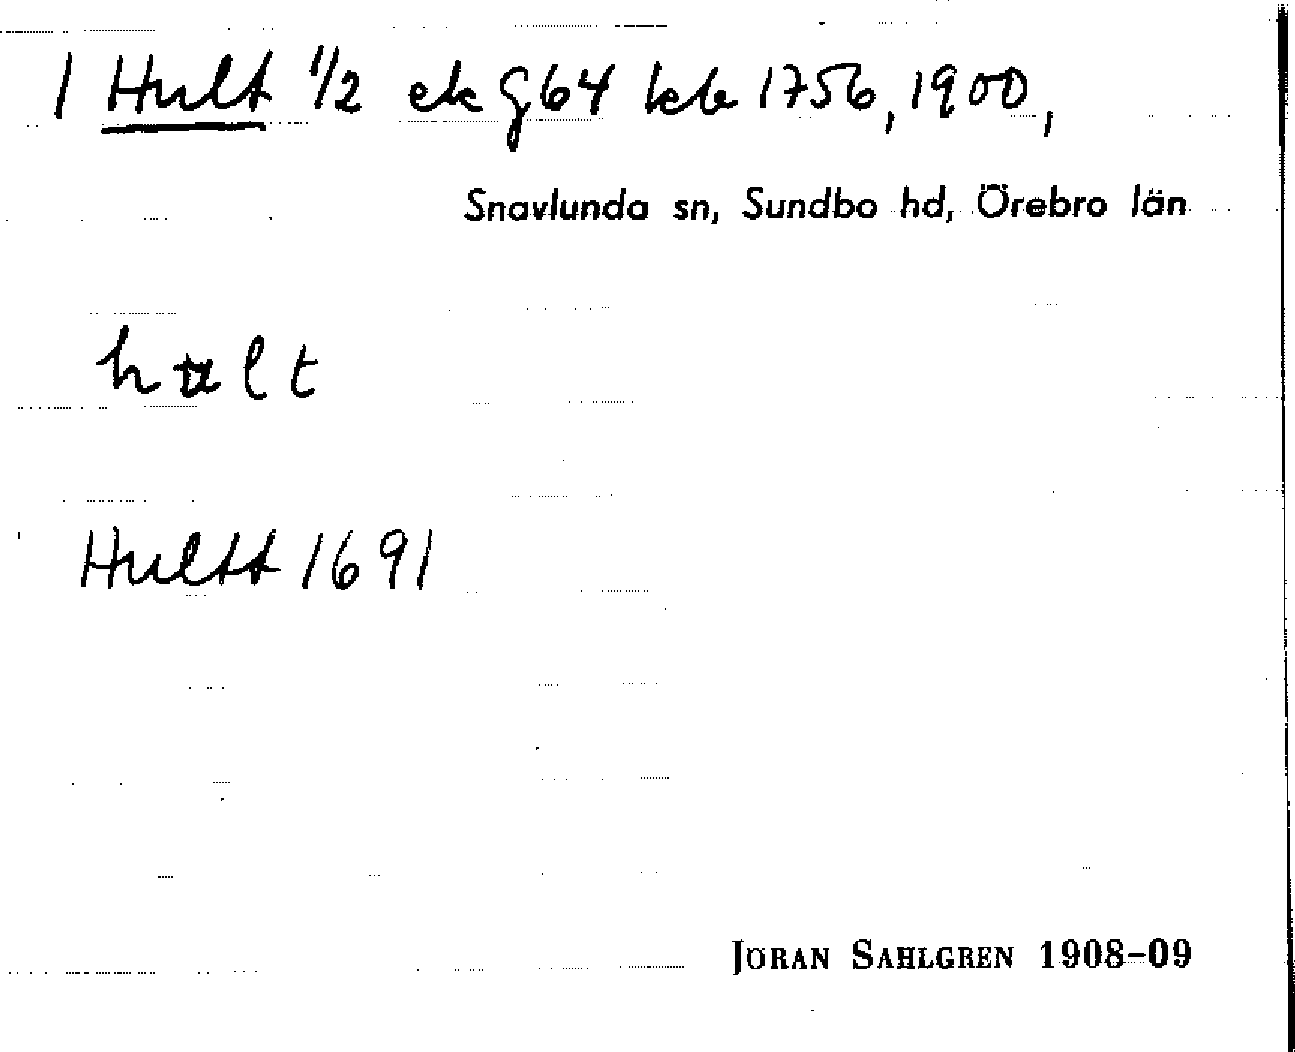 1 Hult 1/2 ek g64 kb 1756, 1900,
Snavlunda sn, Sundbo hd, Örebro län
hult
Hultt 1691
JÖRAN SAHLGREN 1908-09